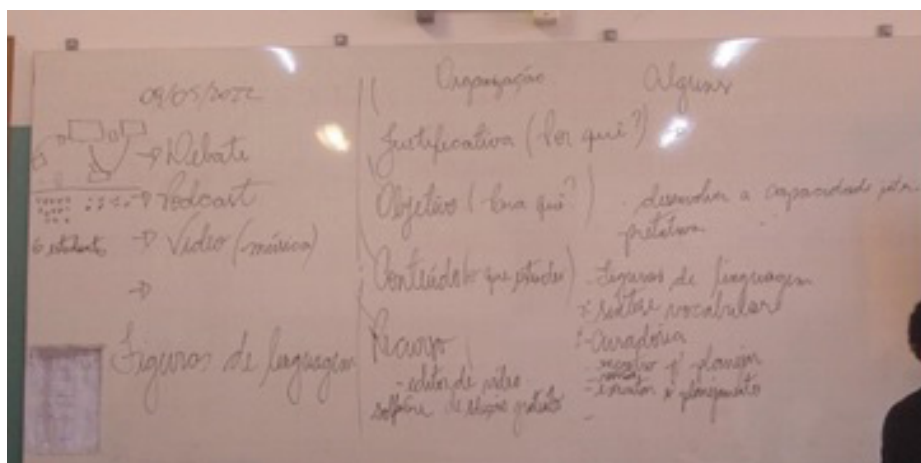 09/05/2022
→ Debate
→ Podcast
6 estudantes → Vídeo (música)
→
Figuras de linguagem
Organização
Justificativa (Por quê?)
Objetivo (Para quê?)
Conteúdo (o que estudar)
Recurso
- editor de vídeo
software de edição gratuito
Alguns
desenvolver a capacidade
pretativa
- Figuras de linguagem
vocabulare
- Curadoria
planejamento